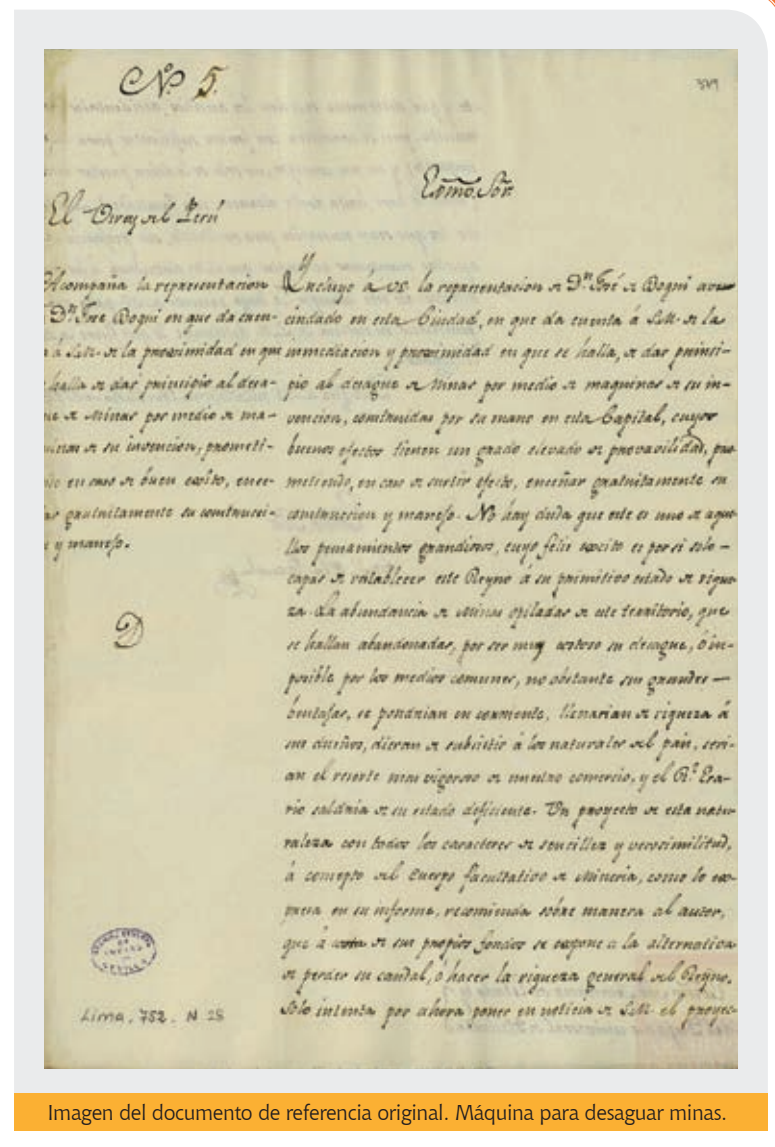 Nº 5.
379
Exmo. Sor.
El Virey del Perú
Acompaña la representacion
Dn. José Boqui en que da cuen-
á S.M. de la proximidad en que
halla de dar principio al desa-
de Minas por medio de ma-
de su invencion, prometi-
en caso de buen exîto, ense-
gratuitamente su construcci-
y manejo.
D
Yncluyo á VE. la representacion de Dn. José de Boqui ave-
cindado en esta Ciudad, en que da cuenta á S.M. de la
inmediacion y proximidad en que se halla, de dar princi-
pio al desague de Minas por medio de maquinas de su in-
vencion, construidas por su mano en esta Capital, cuyos
buenos efectos tienen un grado elevado de provavilidad, pro-
metiendo, en caso de surtir efecto, enseñar gratuitamente su
construccion y manejo. No hay duda que este es uno de aque-
llos pensamientos grandiosos, cuyo feliz excito es por si solo
capas de restablecer este Reyno á su primitivo estado de rique-
za. La abundancia de Minas opiladas de este territorio, que
se hallan abandonadas, por ser muy costoso su desague, ó im-
posible por los medios comunes, no obstante sus grandes
bentajas, se pondrian en corriente, llenarian de riqueza á
sus dueños, dieran de subsistir á los naturales del pais, seri-
an el resorte mas vigoroso de nuestro comercio, y el Rl. Era-
rio saldria de su estado deficiente. Un proyecto de esta natu-
raleza con todos los caracteres de sencillez y verosimilitud,
á concepto del Cuerpo facultativo de Mineria, como lo ex-
presa en su informe, recomienda sobre manera al autor,
que á costa de sus propios fondos se expone a la alternativa
de perder su caudal, ó hacer la riqueza general del Reyno.
Solo intenta por ahora poner en noticia de S.M. el proyec-
SEVILLA
Lima. 752. N 25
Imagen del documento de referencia original. Máquina para desaguar minas.